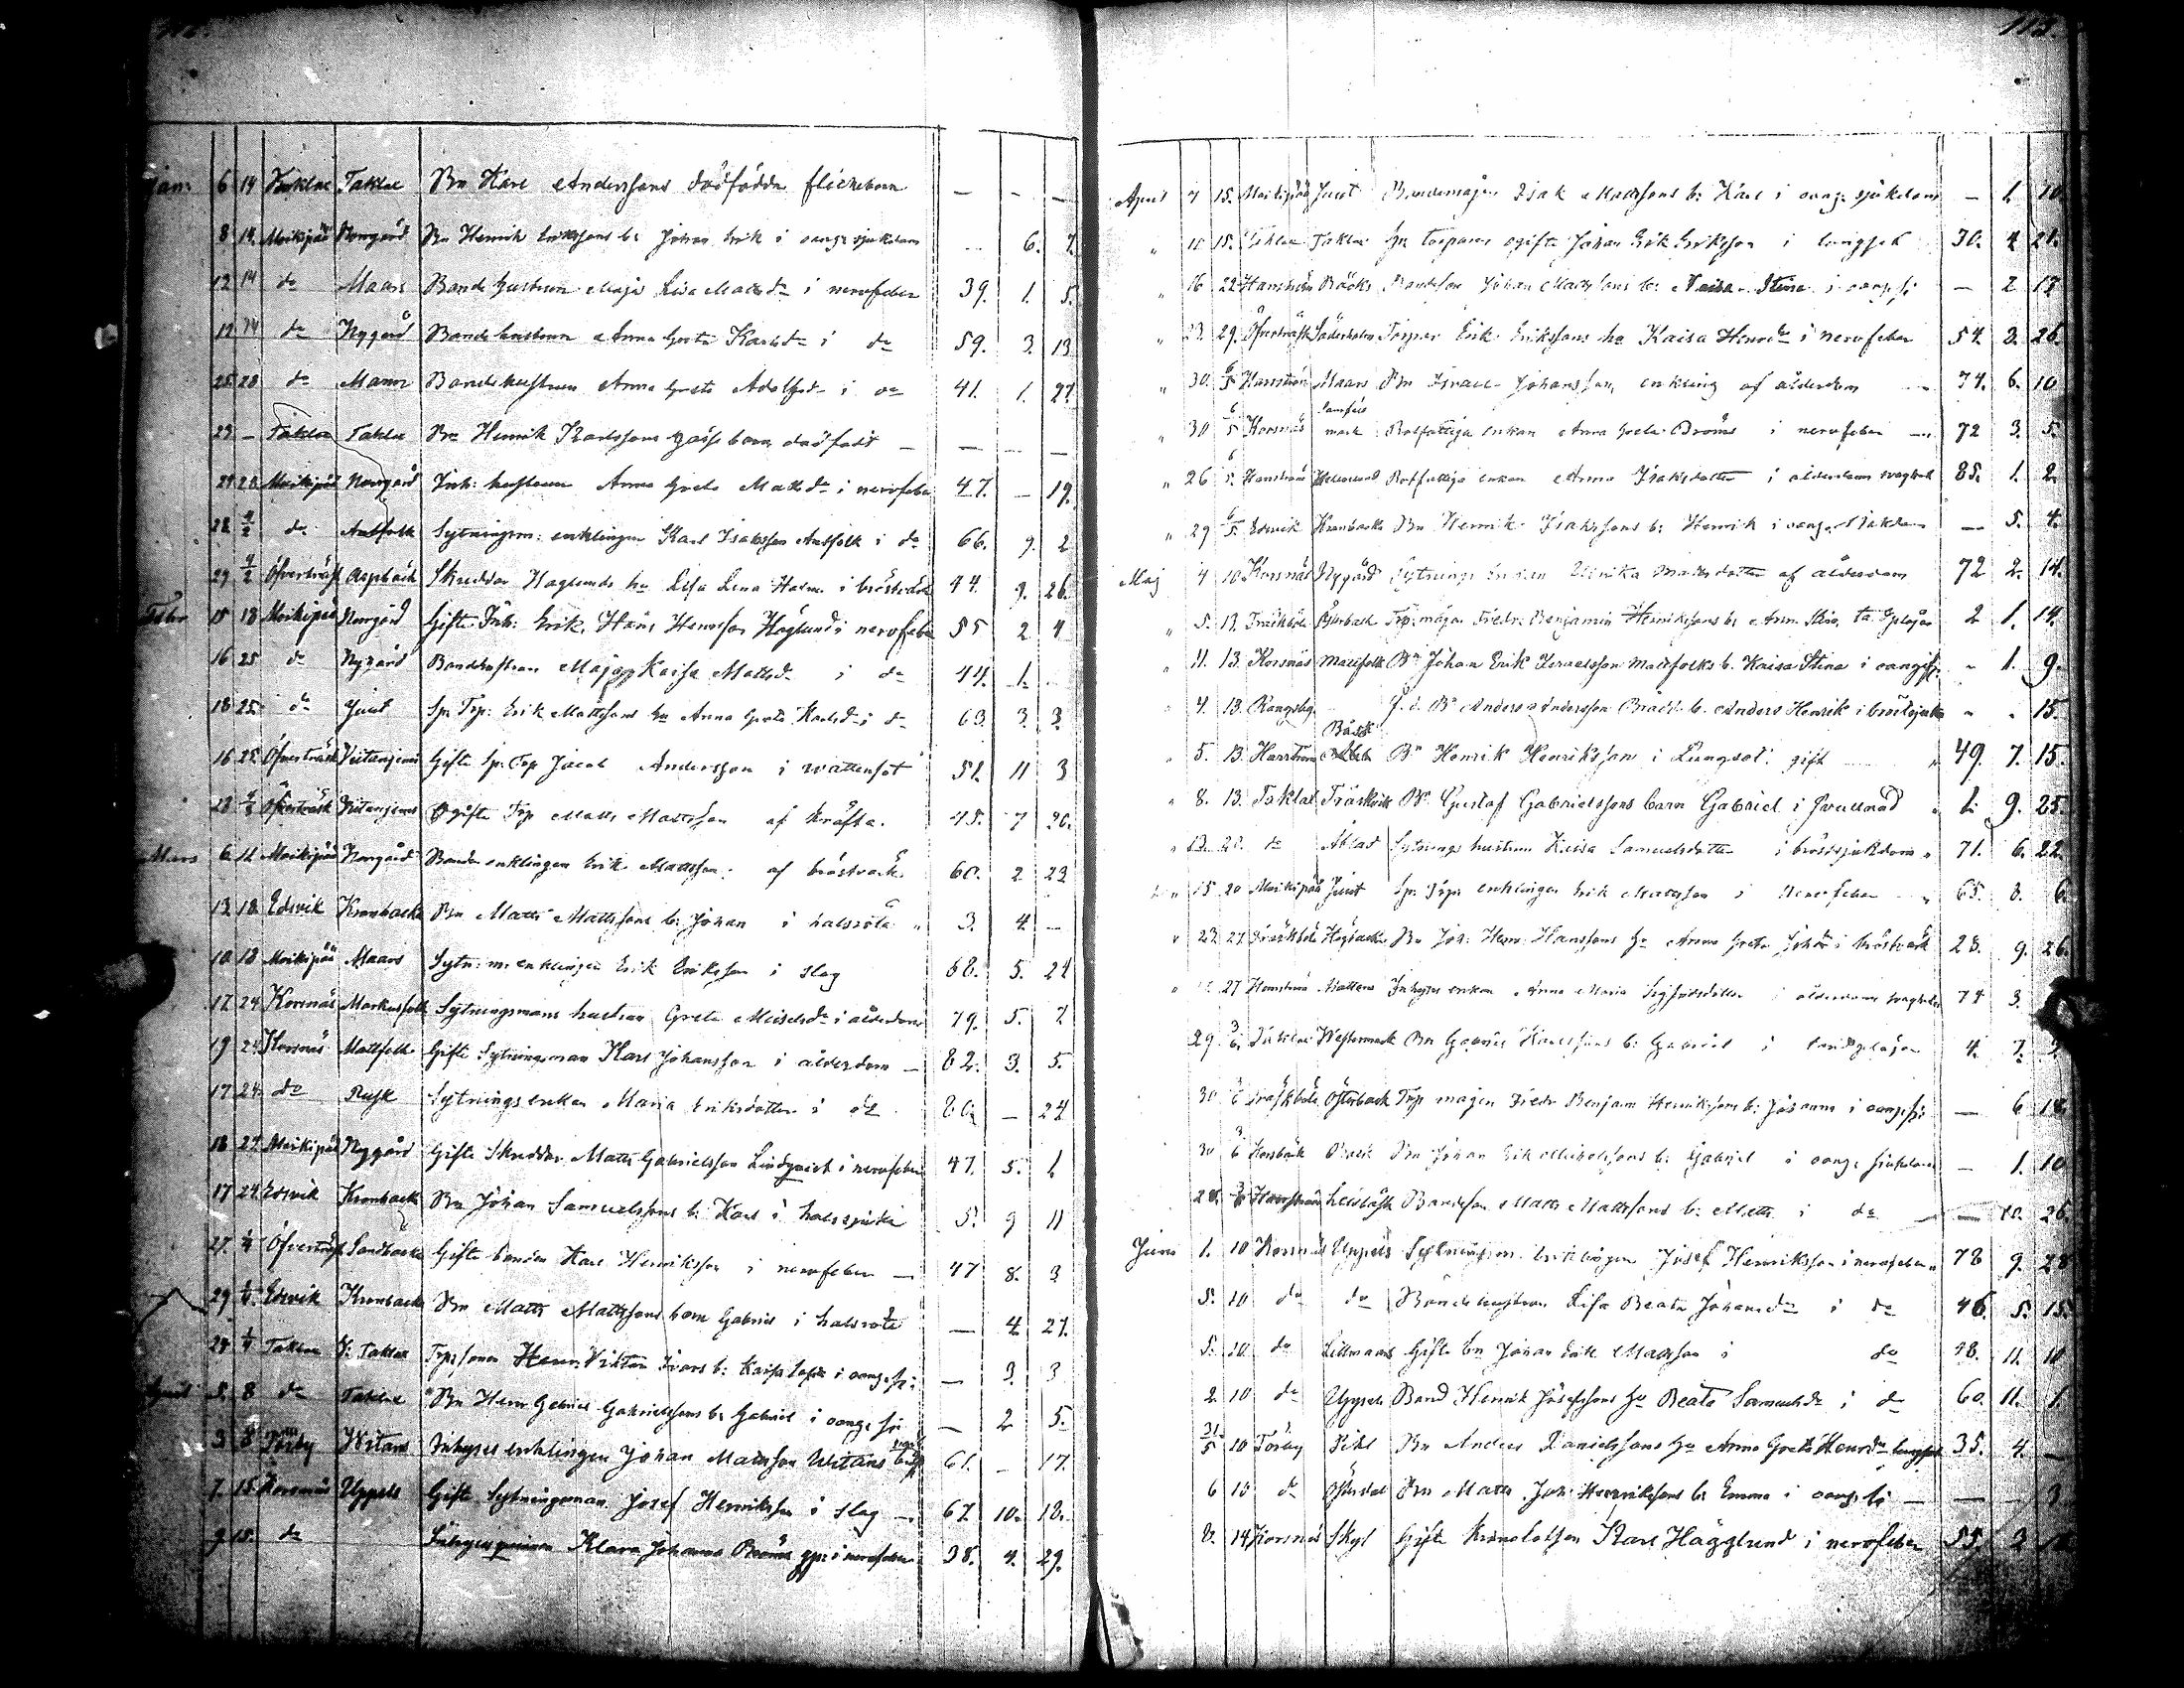 112.
Jan: 6 14 Taklax Taklax Bn Karl Anderssons dödfödda flickebarn — — —
8 14 Moikipää Norrgård Bn Henrik Erikssons b: Johan Erik i oang: sjukdom — 6. 7.
12 14 do Maars Bondehustrun Maja Lisa Mattsdr i nervfeber 39. 1. 5.
12 14 do Nygård Bondehustrun Anna Greta Karlsdr i do 59. 3. 13
25 28 do Manns Bondehustrun Anna Greta Adolfsdr i do 41. 1. 27.
23 — Taklax Taklax Bn Henrik Karlssons gossebarn dödfödt — — —
28 Moikipää Norrgård Inh: hustrun Anna Greta Mattsdr i nervfeber 47. — 19.
28 4/2 do Antfolk Sytningsm: enklingen Karl Isaksson Antfolk i do 66. 9. 2
29 4/2 Öfverträsk Aspback Skreddar Haglunds hu Lisa Lena i bröstvärk 44. 9. 26.
Febr 15 18 Moikipää Norrgård Gifte Inh: Erik Hans Henrsson Höglund i nervfeber 55 2 4
16 25 do Nygård Bondehustrun Maja Kaisa Mattsdr i do 44. 1.
18 25 do Juut Sp: Trp: Erik Mattssons hu Anna Greta Karlsdr i do 63. 3. 3.
16 25 Öfverträsk Gifte Sp: Trp Jacob Andersson i wattensot 51. 11 3
23 Öfverträsk Ogifte Trp Matts Mattsson af kräfta. 45. 7 30.
Mars 6 11 Moikipää Norrgård Bonde enklingen Erik Mattsson af bröstvärk 60. 2 23
13 18 Edsvik Kronback Bn Matts Mattssons b: Johan i halsröta 3. 4. —
10 18 Moikipää Maars Sytn:m: enklingen Erik Eriksson i slag 68. 5. 24
17 24 Korsnäs Markusfolk Sytningsmans hustru Greta i ålderdom 79. 5. 7.
19 24 Korsnäs Mattfolk Gifte Sytningsman Karl Johansson i ålderdom — 82. 3. 5.
17 24 do Rusk Sytnings enkan Maria Eriksdotter i do — 24
18 24 Moikipää Nygård Gifte Skreddar Matts Gabrielsson Lindqvist i nervfeber 47. 5. 1
17 24 Edsvik Kronback Bn Johan Samuelssons b: Karl i halssjuka 5. 9 11
27 1/4 Öfverträsk Sandback Gifte bonden Karl Henriksson i nervfeber — 47 8. 3
29 Edsvik Kronback Bn Matts Mattssons barn Gabriel i halsröta — 4. 27.
29 1/4 Taklax Taklax Trp: sonen Henr: Viktor b: Kaisa Sofia i oang: sj: — 3. 3
April 8 do Taklax Bn Henr Gabriel Gabrielssons b: Gabriel i oang: sj: — 2 5.
3 8 Töjby Witans Inhyses enklingen Johan Mattsson Witans 61. — 17.
7 15 Korsnäs Uppels Gifte Sytningsman Josef Henriksson i slag — 67 10. 18.
9 15. do Inhysespigan Klara Johanna i nervfeber 38. 4. 29.
April 7 15. Moikipää Juut Bondemågen Isak Mattssons b: Karl i oang: sjukdom — 1 10.
" 15 15. Taklax Taklax Sp: torparen ogifte Johan Erik Eriksson i lungsot 30. 4 21.
" 16 22 Harrström Bäcks Bondeson Johan Mattssons b: Kaisa Stina i oang: sj: — 2 17
" 23. 29. Öfverträsk Söderholm Torpar Erik Erikssons hu Kaisa Henrdr i nervfeber 54. 3. 26.
" 30 6/5 Harrström Maars Bn Israel Johansson, enkling af ålderdom 74. 6. 10
" 30 6/5 Korsnäs mark Rotfattiga enkan Anna Greta Bröms i nervfeber — 72 3. 5.
" 26 6/5 Harrström Rotfattiga enkan Anna Isaksdotter i ålderdoms svaghet 85. 1. 2.
" 29 6/5 Edsvik Kronback Bn Henrik Isakssons b: Henrik i oang: sjukdom — 5. 4.
Maj 4 10. Korsnäs Nygård Sytnings enkan Ulrika Mattsdotter af ålderdom 72 2. 14.
" 5. 13. Träskböle Österback Trp: mågen Fredr: Benjamin Henrikssons b: 2 1. 14.
" 11. 13. Korsnäs Mattfolk Bn Johan Erik Israelsson Mattfolks b. Kaisa Stina i oang: sj: " 1. 9.
" 4. 13. Rangsby F.d. Bn Anders Andersson b. Anders Henrik i bröstsjukd " " 15.
" 5. 13. Harrström Båsk Bn Henrik Henriksson i Lungsot. gift " 49 7. 15.
" 8. 13. Taklax Träskvik Bn Gustaf Gabrielssons barn Gabriel i " 1. 9. 25.
" 13. 20. do Åblad Sytnings hustrun Kaisa Samuelsdotter i bröstsjukdom " 71. 6. 22.
" 15 20 Moikipää Juut Sp: Trp: enklingen Erik Mattsson i Nervfeber " 65. 8. 6.
" 23. 27. Träskböle Högback Bn Joh: Henr: Hanssons hu Anna Greta Johdr i bröstvärk 28. 9. 26.
" 27 Harrström Mattans Inhyses enkan Anna Maria Sigfridsdotter i ålderdoms svaghet 74 3.
29. 3/6 Taklax Westermark Bn Gabriel Karlssons b: Gabriel i 4. 7. 3.
30 3/6 Träskböle Österback Trp mågen Fredr Benjam Henrikssons b: Johanna i oang: sj: — 6 18.
30 3/6 Korsbäck Bn Johan Erik Michelssons b: Gabriel i oang: sjukdom — 1. 10
28. 3/6 Harrström Bondeson Matts Mattssons b: Matts i do — — 10. 26.
Juni 1. 10 Korsnäs Uppels Sytningsm: enklingen Josef Henriksson i nervfeber " 78 9. 28
5. 10 do do Bondehustrun Lisa Beata Johansdr i do 46. 5. 15.
5. 10. do Lillmans Gifte bn Johan Erik Mattsson i do 48. 11. 10
2. 10 do Uppels Bond Henrik Josefssons hu Beata Samuelsdr i do 60. 11. 1.
31/5 10 Töjby Pihl Bn Anders Danielssons hu Anna Greta Henrdr lungsot 35. 4. —
6 10 do Österdal Bn Matts Joh: Henrikssons b: Emma i oang: sj: — — — 3
8. 14 Korsnäs Skyt Gifte Kronolotsen Karl Hägglund i nervfeber 55. 3